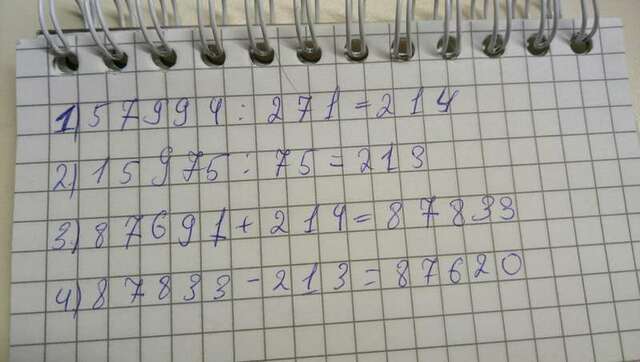 1) 57994 : 271 = 214
2) 15975 : 75 = 213
3) 87691 + 214 = 87833
4) 87833 - 213 = 87620